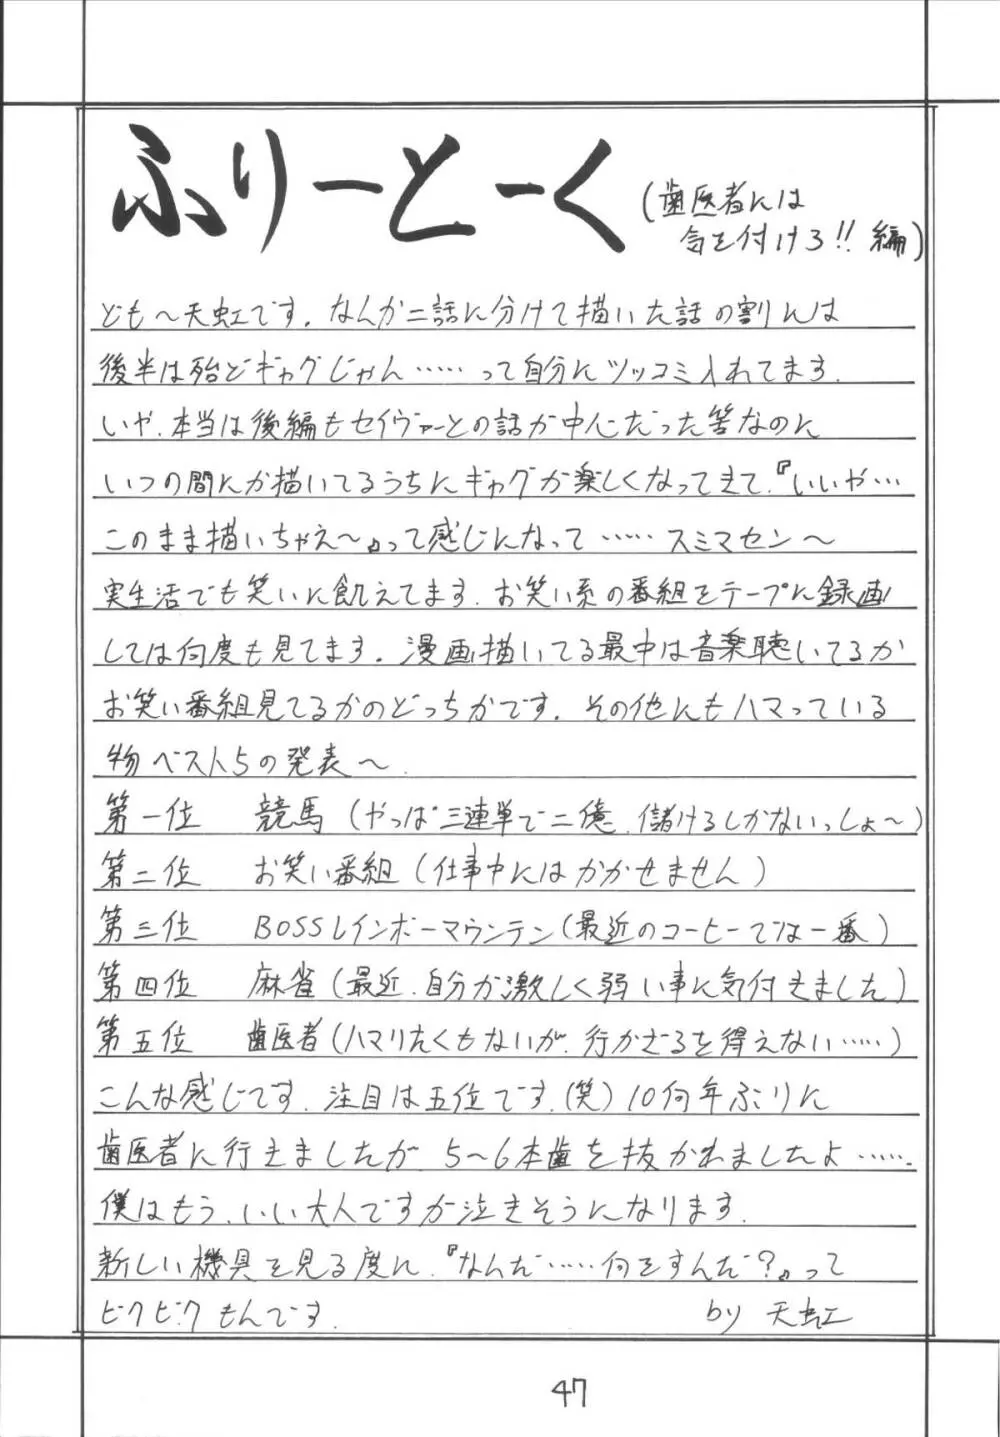 ふりーとーく
(歯医者には
気を付けろ!!編)
ども〜天虹です。なんか二話に分けて描いた話の割には
後半は殆どギャグじゃん……って自分にツッコミ入れてます。
いや、本当は後編もセイヴァーとの話が中心だった筈なのに
いつの間にか描いてるうちにギャグが楽しくなってきて、『いいや…
このまま描いちゃえ〜』って感じになって……スミマセン〜
実生活でも笑いに飢えてます。お笑い系の番組をテープに録画
しては何度も見てます。漫画描いてる最中は音楽聴いてるか
お笑い番組見てるかのどっちかです。その他にもハマっている
物ベスト5の発表〜
第一位 競馬(やっぱ三連単で二億、儲けるしかないっしょ〜)
第二位 お笑い番組(仕事中にはかかせません)
第三位 BOSSレインボーマウンテン(最近のコーヒーでは一番)
第四位 麻雀(最近、自分が激しく弱い事に気付きました)
第五位 歯医者(ハマりたくもないが、行かざるを得えない……)
こんな感じです。注目は五位です。(笑)10何年ぶりに
歯医者に行きましたが、5〜6本歯を抜かれましたよ……。
僕はもう、いい大人ですが泣きそうになります。
新しい機具を見る度に、『なんだ……何をすんだ?』って
ビクビクもんです。 by 天虹
47